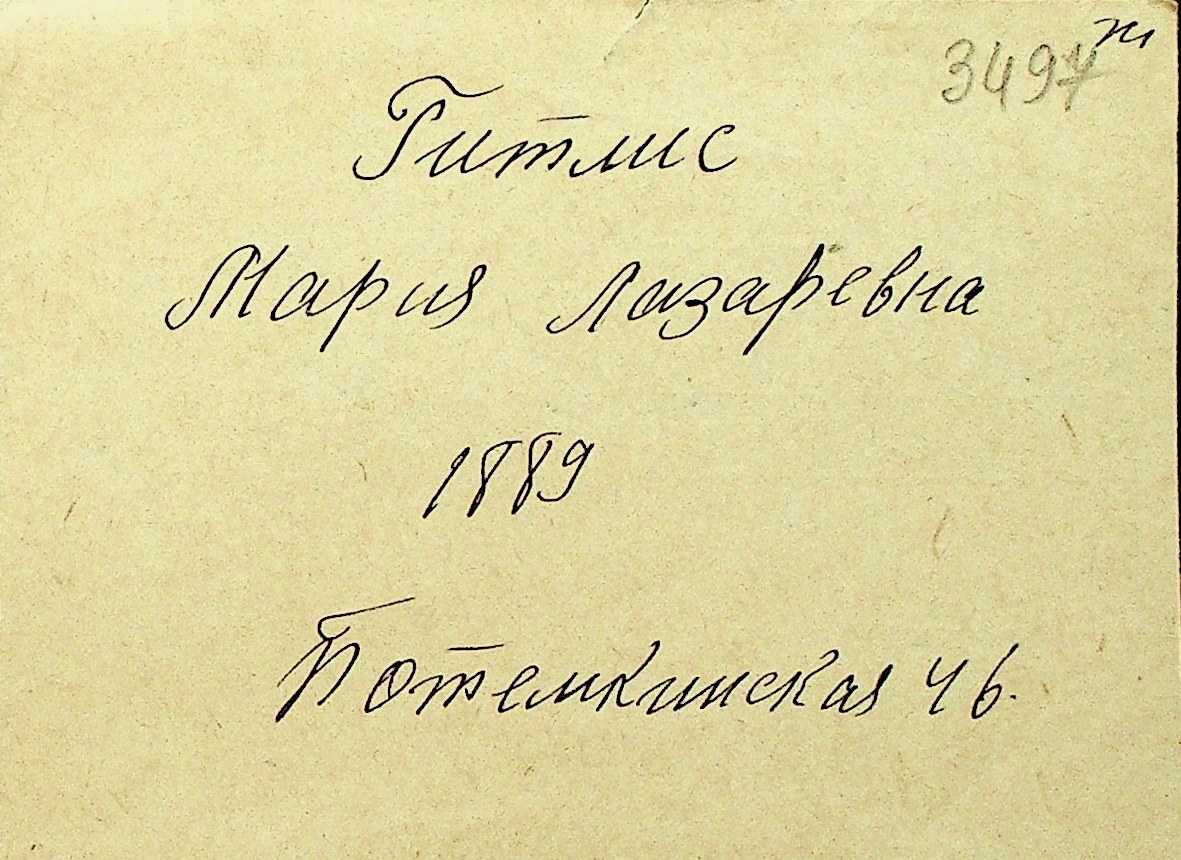 3497
Гитлис
Мария Лазаревна
1889
Потемкинская 46.